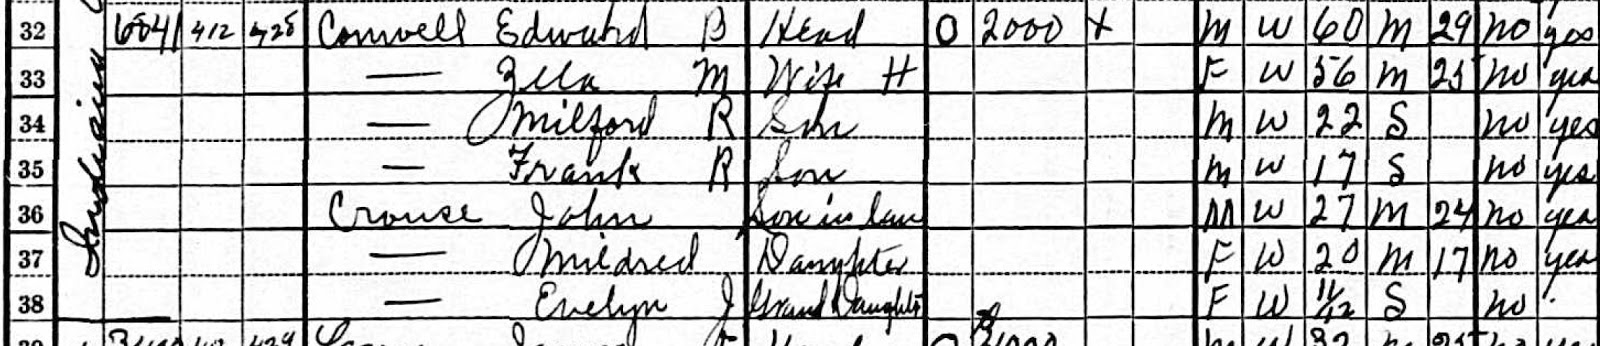 32 412 428 Conwell Edward B Head O 2000 X M W 60 M 29 no yes
33 — Zella M Wife H F W 56 M 25 no yes
34 — Milford R Son M W 22 S no yes
35 — Frank R Son M W 17 S no yes
36 Crouse John Son in law M W 27 M 24 no yes
37 — Mildred Daughter F W 20 M 17 no yes
38 — Evelyn J Grand Daughter F W 11/12 S no